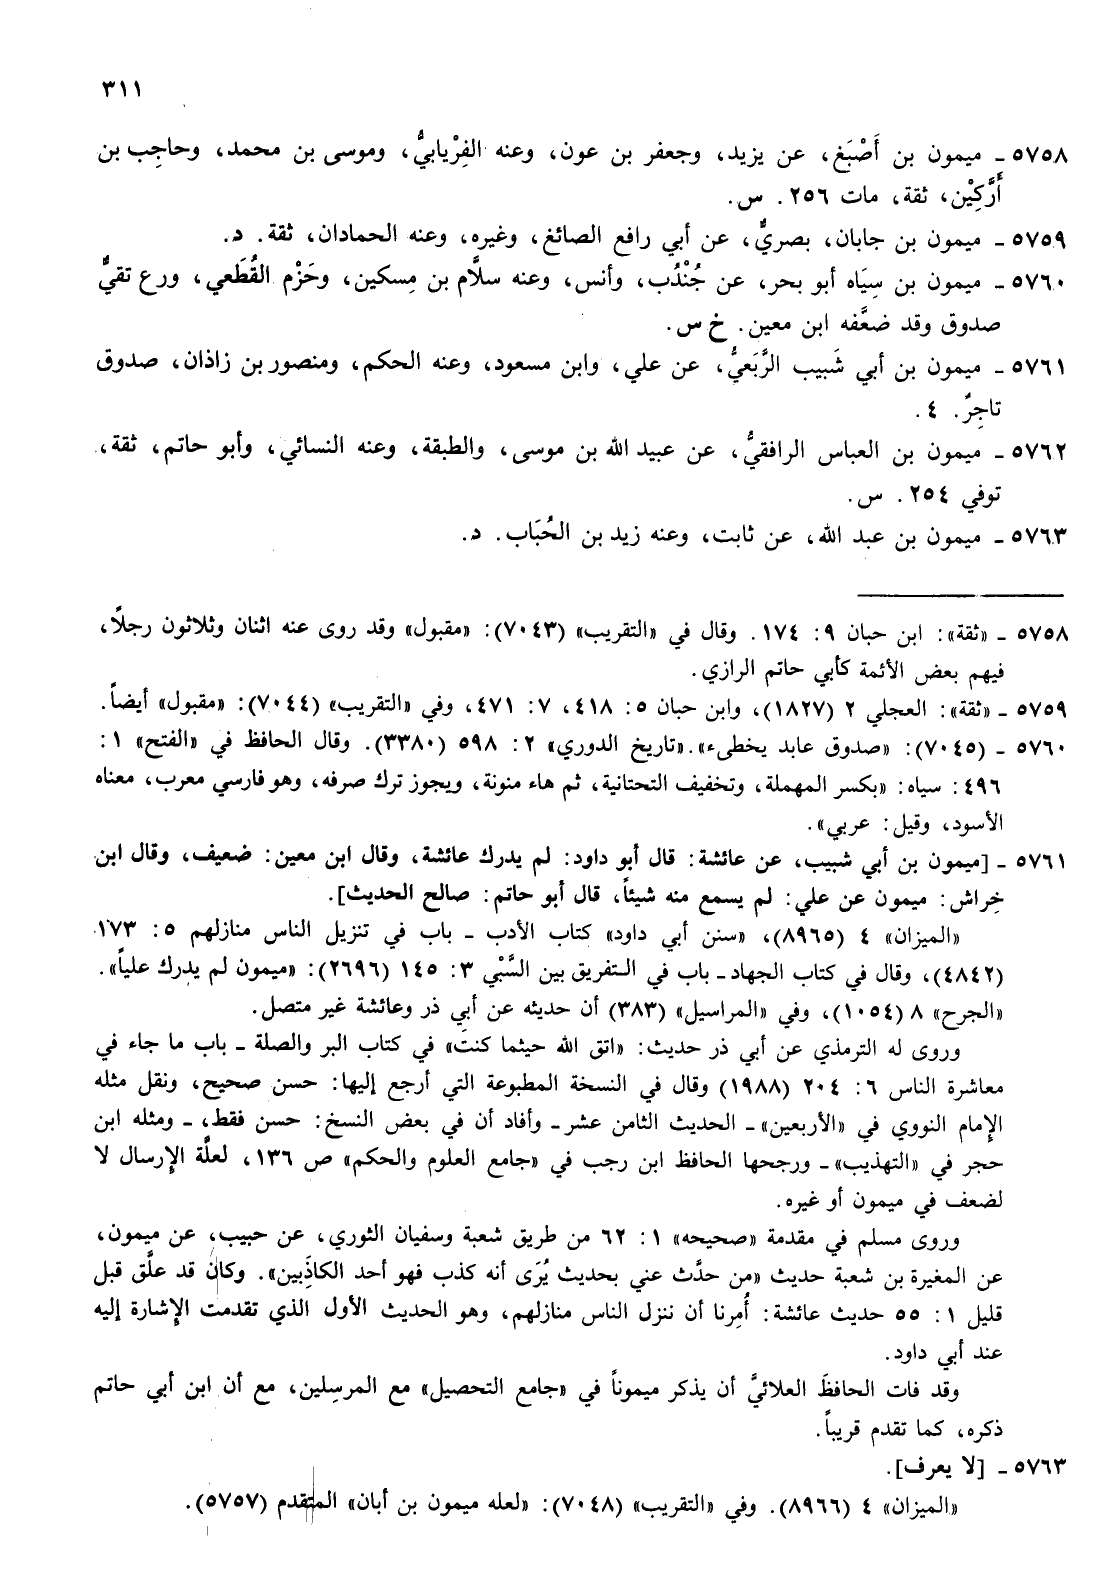 ٣١١
٥٧٥٨ ـ ميمون بن أَصْبَغ، عن يزيد، وجعفر بن عون، وعنه الفِرْيابيُّ، وموسى بن محمد، وحاجِب بن
أَرَّكِيْن، ثقة، مات ٢٥٦. س.
٥٧٥٩ ـ ميمون بن جابان، بصريٌّ، عن أبي رافع الصائغ، وغيره، وعنه الحمادان، ثقة. د.
٥٧٦٠ ـ ميمون بن سِيَاه أبو بحر، عن جُنْدُب، وأنس، وعنه سلَّام بن مِسكين، وحَزْم القُطَعي، ورع تقيٌّ
صدوق وقد ضعَّفه ابن معين. خ س.
٥٧٦١ ـ ميمون بن أبي شَبيب الرَّبَعيُّ، عن علي، وابن مسعود، وعنه الحكم، ومنصور بن زاذان، صدوق
تاجِرٌ. ٤.
٥٧٦٢ ـ ميمون بن العباس الرافقيُّ، عن عبيد الله بن موسى، والطبقة، وعنه النسائي، وأبو حاتم، ثقة،
توفي ٢٥٤. س.
٥٧٦٣ ـ ميمون بن عبد الله، عن ثابت، وعنه زيد بن الحُبَاب. د.
٥٧٥٨ ـ «ثقة»: ابن حبان ٩: ١٧٤. وقال في «التقريب» (٧٠٤٣): «مقبول» وقد روى عنه اثنان وثلاثون رجلًا،
فيهم بعض الأئمة كأبي حاتم الرازي.
٥٧٥٩ ـ «ثقة»: العجلي ٢ (١٨٢٧)، وابن حبان ٥: ٤١٨، ٧: ٤٧١، وفي «التقريب» (٧٠٤٤): «مقبول» أيضاً.
٥٧٦٠ ـ (٧٠٤٥): «صدوق عابد يخطىء». «تاريخ الدوري» ٢: ٥٩٨ (٣٣٨٠). وقال الحافظ في «الفتح» ١:
٤٩٦: سياه: «بكسر المهملة، وتخفيف التحتانية، ثم هاء منونة، ويجوز ترك صرفه، وهو فارسي معرب، معناه
الأسود، وقيل: عربي».
٥٧٦١ ـ [ميمون بن أبي شبيب، عن عائشة: قال أبو داود: لم يدرك عائشة، وقال ابن معين: ضعيف، وقال ابن
خِراش: ميمون عن علي: لم يسمع منه شيئاً، قال أبو حاتم: صالح الحديث].
«الميزان» ٤ (٨٩٦٥)، «سنن أبي داود» كتاب الأدب ـ باب في تنزيل الناس منازلهم ٥: ١٧٣
(٤٨٤٢)، وقال في كتاب الجهاد ـ باب في التفريق بين السَّبْي ٣: ١٤٥ (٢٦٩٦): «ميمون لم يدرك علياً».
«الجرح» ٨ (١٠٥٤)، وفي «المراسيل» (٣٨٣) أن حديثه عن أبي ذر وعائشة غير متصل.
وروى له الترمذي عن أبي ذر حديث: «اتق الله حيثما كنت» في كتاب البر والصلة ـ باب ما جاء في
معاشرة الناس ٦: ٢٠٤ (١٩٨٨) وقال في النسخة المطبوعة التي أرجع إليها: حسن صحيح، ونقل مثله
الإمام النووي في «الأربعين» ـ الحديث الثامن عشر ـ وأفاد أن في بعض النسخ: حسن فقط، ـ ومثله ابن
حجر في «التهذيب» ـ ورجحها الحافظ ابن رجب في «جامع العلوم والحكم» ص ١٣٦، لعلَّة الإرسال لا
لضعف في ميمون أو غيره.
وروى مسلم في مقدمة «صحيحه» ١: ٦٢ من طريق شعبة وسفيان الثوري، عن حبيب، عن ميمون،
عن المغيرة بن شعبة حديث «من حدَّث عني بحديث يُرَى أنه كذب فهو أحد الكاذِبين». وكان قد علَّق قبل
قليل ١: ٥٥ حديث عائشة: أُمِرنا أن ننزل الناس منازلهم، وهو الحديث الأول الذي تقدمت الإشارة إليه
عند أبي داود.
وقد فات الحافظَ العلائيَّ أن يذكر ميموناً في «جامع التحصيل» مع المرسِلين، مع أن ابن أبي حاتم
ذكره، كما تقدم قريباً.
٥٧٦٣ ـ [لا يعرف].
«الميزان» ٤ (٨٩٦٦). وفي «التقريب» (٧٠٤٨): «لعله ميمون بن أبان» المتقدم (٥٧٥٧).